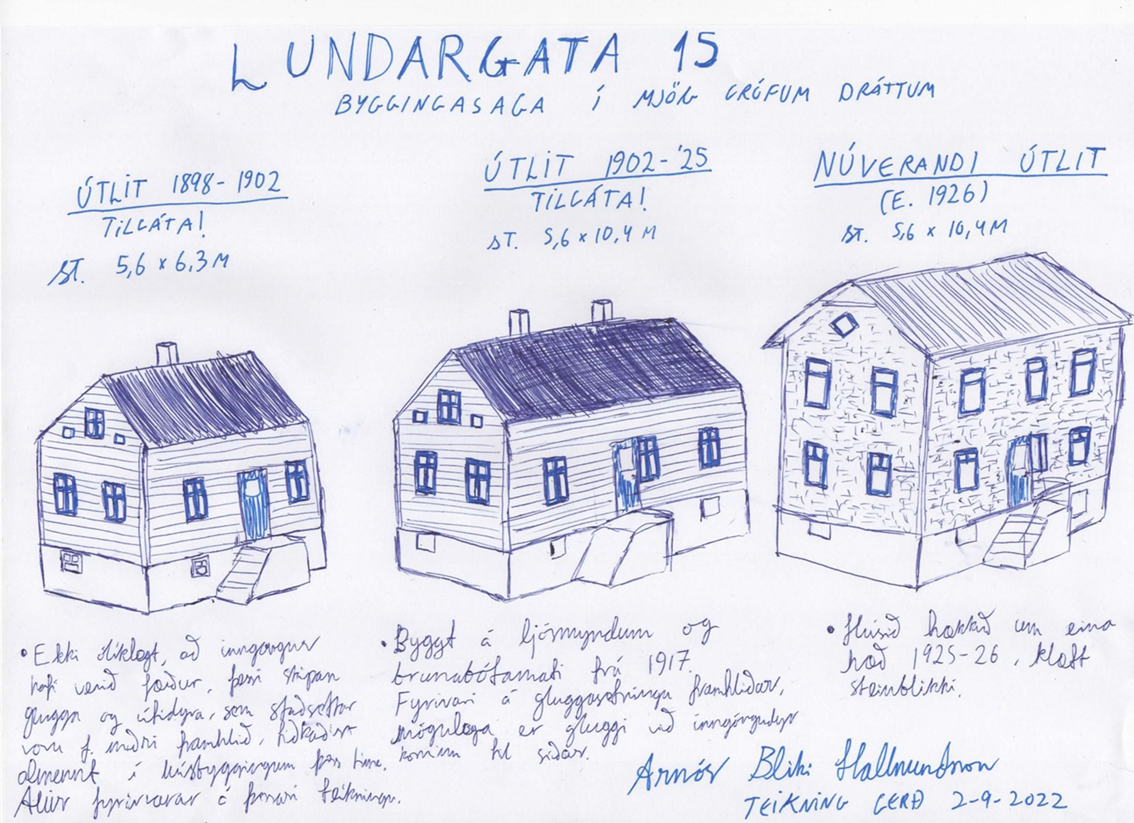 LUNDARGATA 15
BYGGINGASAGA Í MJÖG GRÓFUM DRÁTTUM
ÚTLIT 1898-1902
TILGÁTA!
ST. 5,6 x 6,3 M
ÚTLIT 1902-'25
TILGÁTA!
ST. 5,6 x 10,4 M
NÚVERANDI ÚTLIT
(E. 1926)
ST. 5,6 x 10,4 M
• Ekki ólíklegt, að inngangur
hafi verið
glugga og útidyra, sem staðsettar
voru f. miðri framhlið, tíðkaðist
almennt í húsbyggingum þess tíma.
Allir fyrirvarar á þessari teikningu.
• Byggt á ljósmyndum og
brunabótamati frá 1917.
Fyrirvari á gluggasetningu framhliðar,
mögulega er gluggi við inngöngudyr
kominn til síðar
• Húsið hækkað um eina
hæð 1925-26, klætt
steinblikki.
Arnór Bliki Hallmundsson
TEIKNING GERÐ 2-9-2022